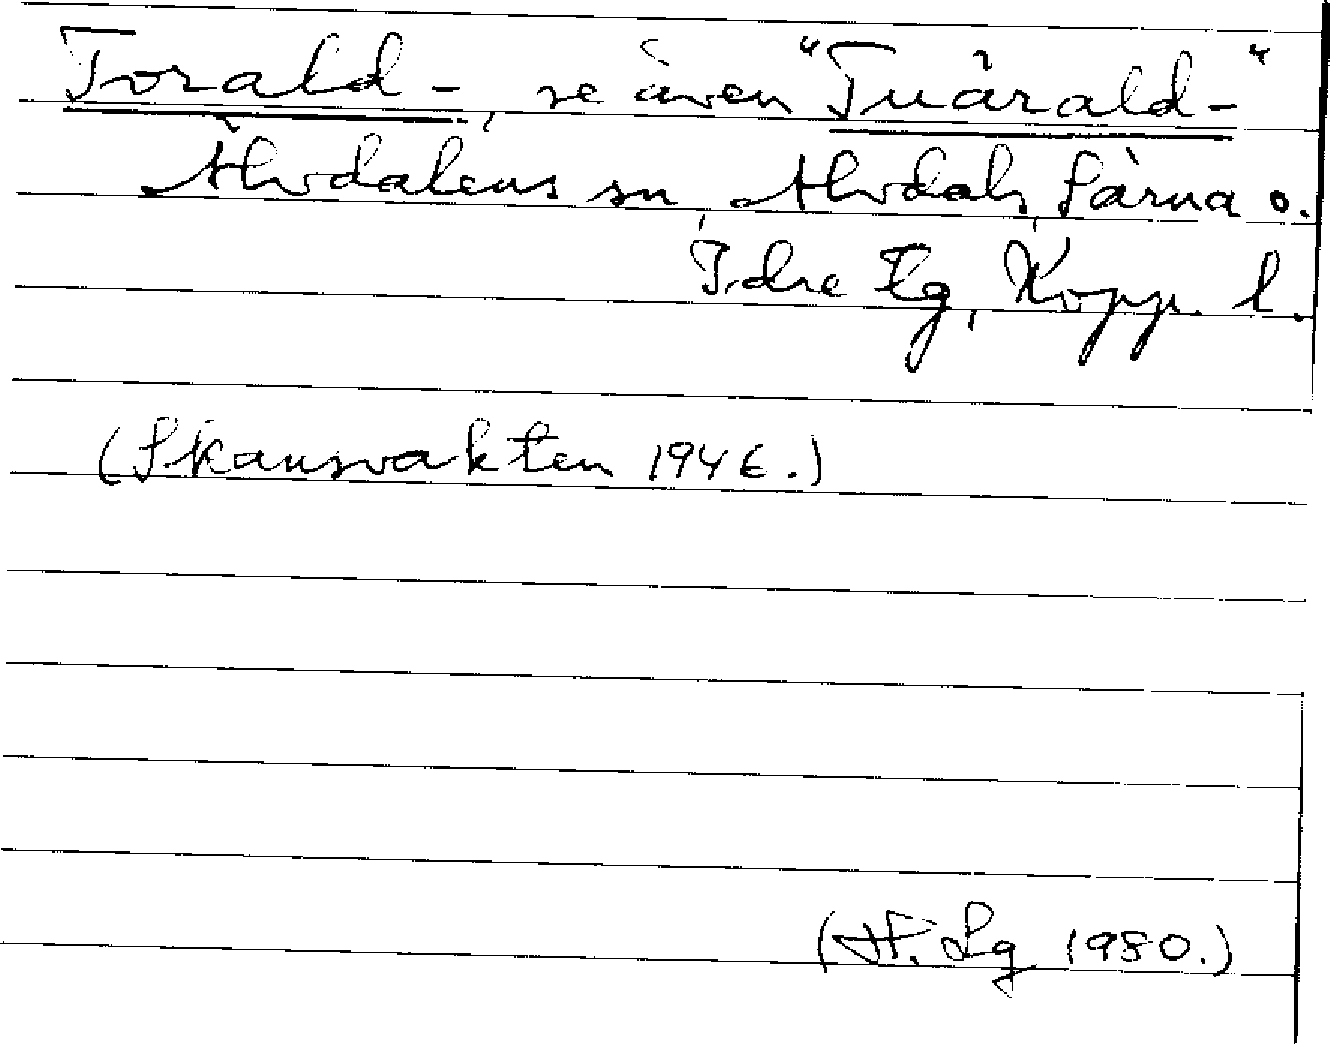 Torald-, se även "Tuärald-"
Älvdalens sn, Älvdals, Särna o.
Idre tg, Kopp. l.
(Skansvakten 1946.)
(H. Lg 1980.)